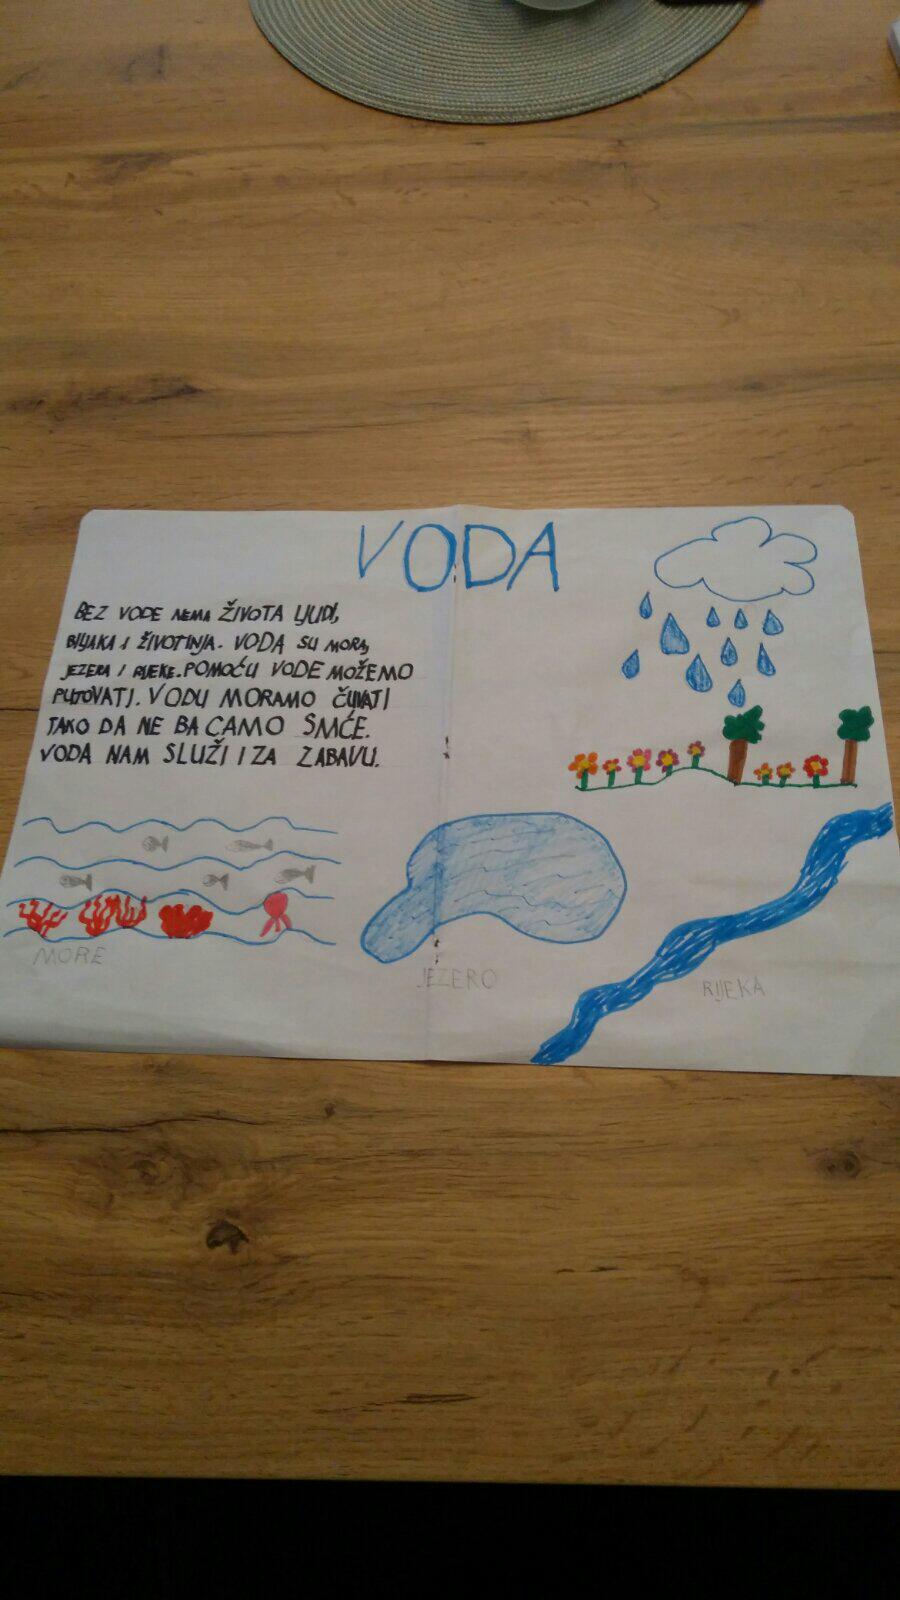 VODA
BEZ VODE NEMA ŽIVOTA LJUDI,
BILJAKA I ŽIVOTINJA. VODA SU MORA,
JEZERA I RIJEKE. POMOĆU VODE MOŽEMO
PUTOVATI. VODU MORAMO ČUVATI
TAKO DA NE BACAMO SMĆE.
VODA NAM SLUŽI I ZA ZABAVU.
MORE
JEZERO
RIJEKA